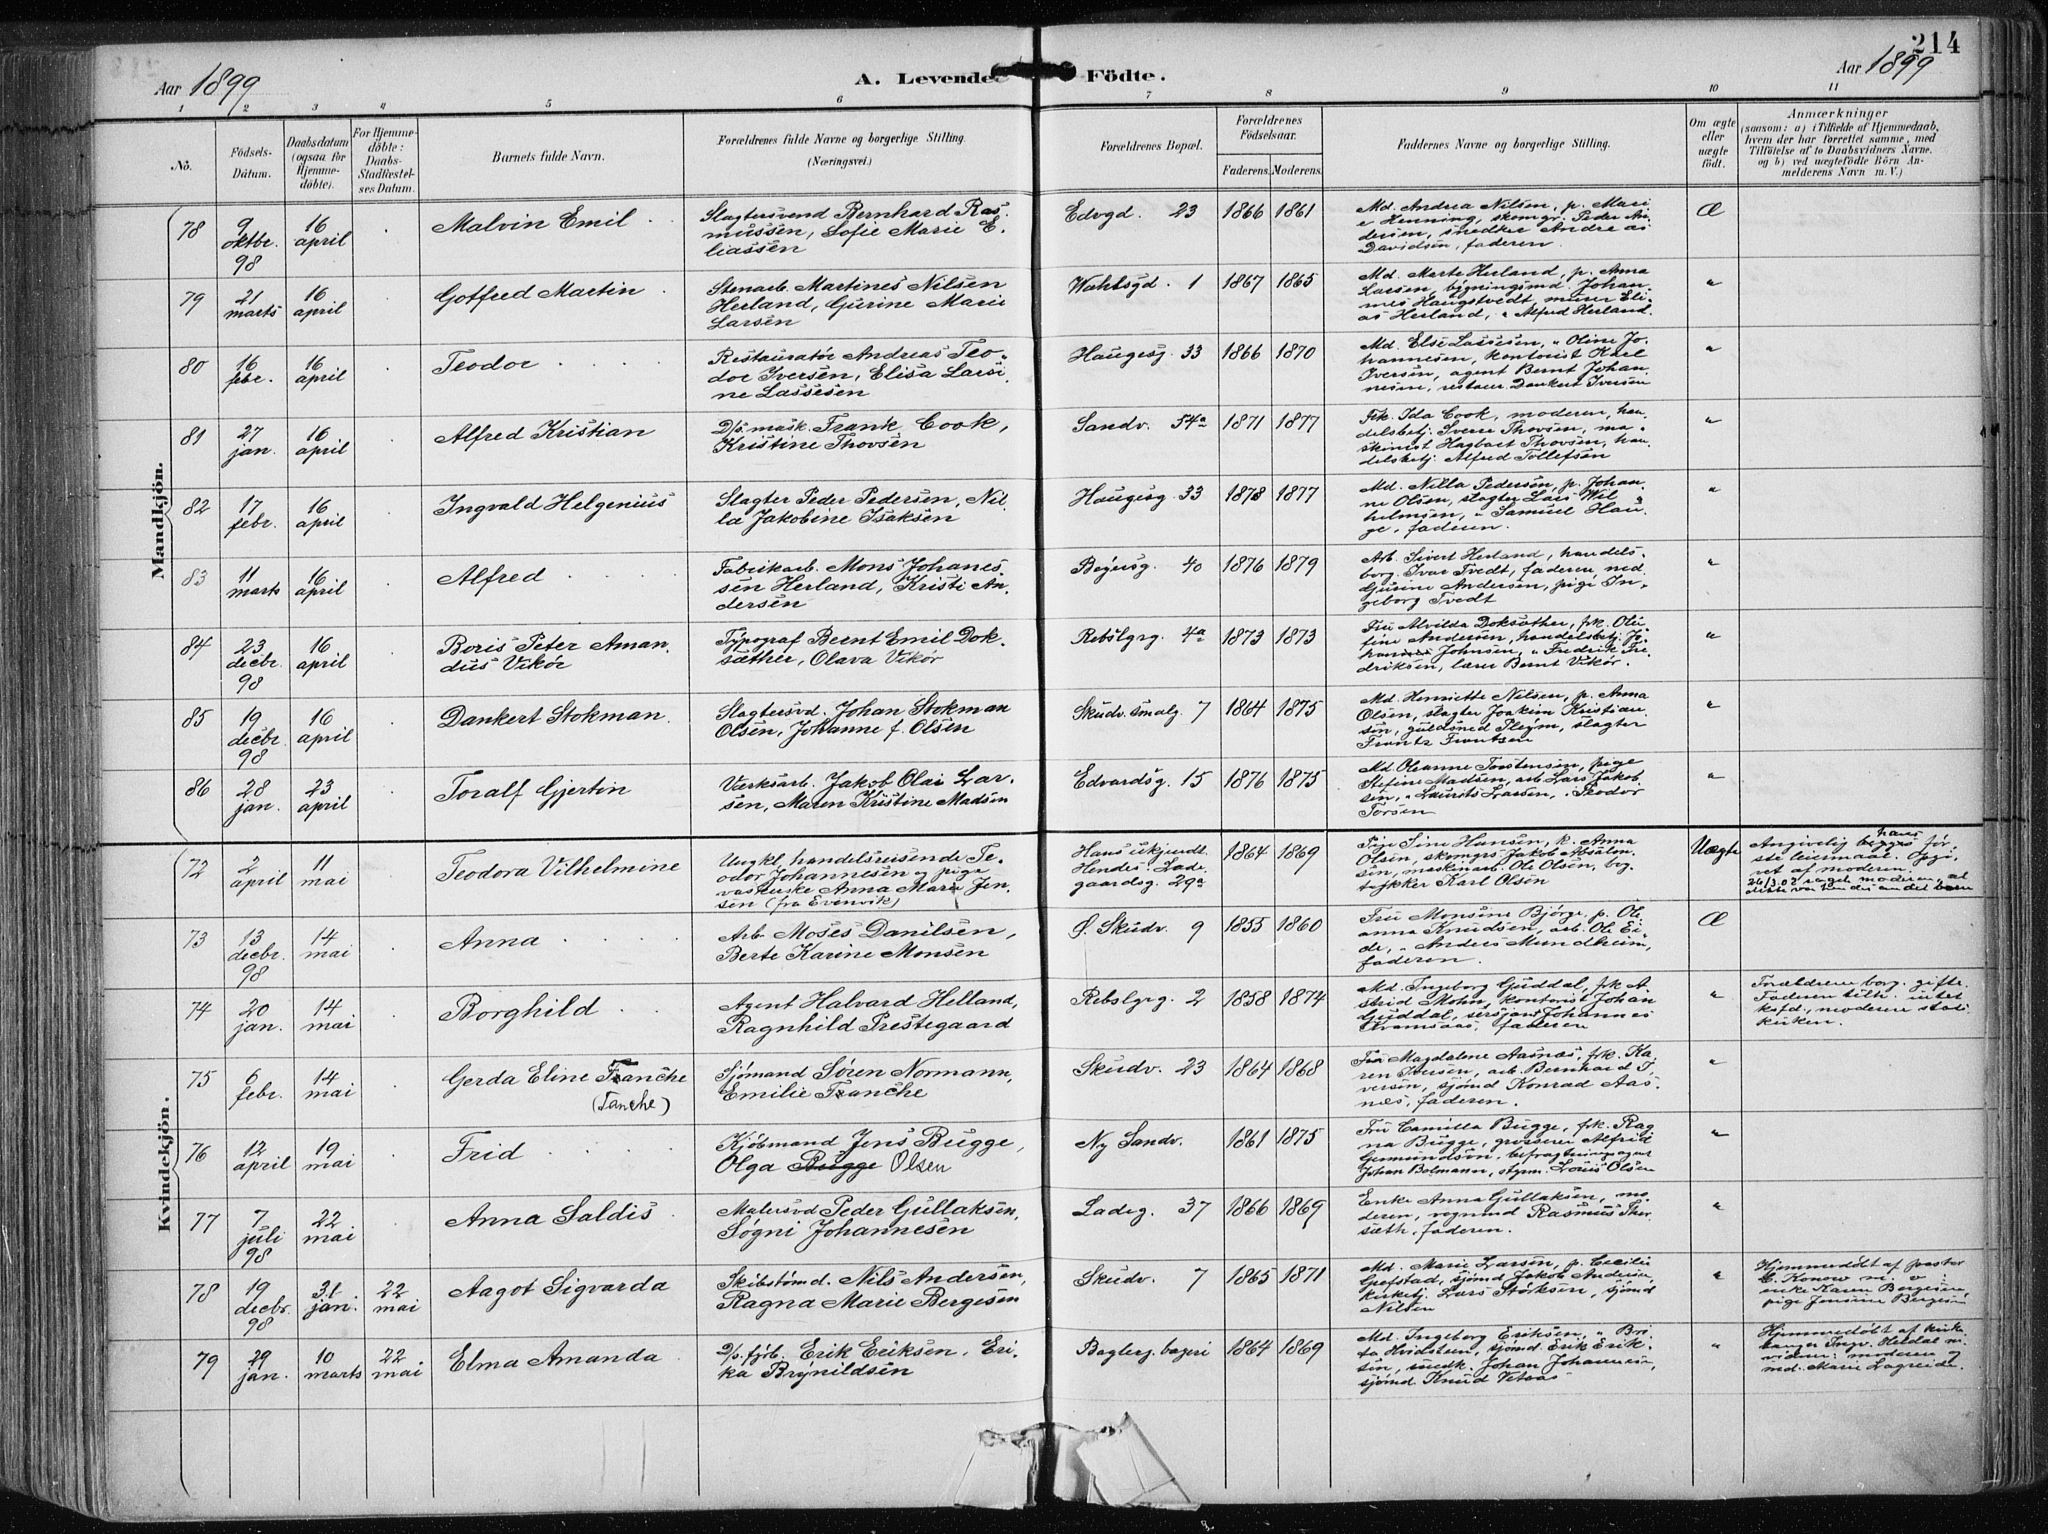 214
Aar 1899
A. Levende Födte.
Aar 1899
1 2 3 4 5 6 7 8 9 10 11
No.
Födsels-Dátum.
Daabsdatum (ogsaa for Hjemme-döbte).
For Hjemme-döbte: Daabs-Stadfæstel-ses Datum.
Barnets fulde Navn.
Forældrenes fulde Navne og borgerlige Stilling.
(Næringsvei.)
Forældrenes Bopæl.
Forældrenes Födselsaar.
Faderens. Moderens.
Faddernes Navne og borgerlige Stilling.
Om ægte eller uægte födt.
Anmærkninger
(saasom: a) i Tilfælde af Hjemmedaab, hvem der har forrettet samme, med Tilföielse af to Daabsvidners Navne. og b) ved uægtefödte Börn An-melderens Navn m. V.)
Mandkjön.
78 9 oktbr. 98 16 april Malvin Emil
Slagtersvend Bernhard Ras
mussen, Sofie Marie E.
liassen
Edvgd. 23 1866 1861
Md. Andrea Nilsen, p. Mari
e Henning, skomgr. Peder An
dersen, snedker Andreas
Davidsen, faderen. Æ
79 21 marts 16 april Gotfred Martin
Stenarb. Martines Nilsen
Herland, Gurine Marie
Larsen
1 1867 1865
Md. Marte Herland, p. Anna
Larsen, bygningsmd. Johan
nes Haugstvedt, murer Eli
as Herland, " Alfred Herland. "
80 16 febr. 16 april Teodor
Restauratør Andreas Teo-
dor Iversen, Elisa Larsi
ne Lassesen
Haugesg. 33 1866 1870
Md. Else Lassesen, " Oline Jo
hannesen, kontorist Karl
Iversen, agent Bernt Johan
nesen, restaur. Dankert Iversen "
81 27 jan. 16 april Alfred Kristian
D/s. mask. Frank Cook,
Kristine Thovsen
Sandv. 54a 1871 1877
Frk. Ida Cook, moderen, han
delsbetj. Sverre Thovsen, ma-
skinist Hagbart Thovsen, han
delsbetj. Alfred Tollefsen "
82 17 febr. 16 april Ingvald Helgenius
Slagter Peder Pedersen, Nil
la Jakobine Isaksen
Haugesg. 33 1878 1877
Md. Nilla Pedersen, p. Johan
ne Olsen, slagter Lars Wil
helmsen, " Samuel Hau
ge, faderen. "
83 11 marts 16 april Alfred
Fabrikarb. Mons Johanes
sen Herland, Kristi An
dersen
Bøiersg. 40 1876 1879
Arb. Sivert Herland, handels
borg. Ivar Tvedt, faderen
Gurine Andersen, pige In
geborg Tvedt "
84 23 decbr. 98 16 april Boris Peter Aman
dus Vikør
Typograf Bernt Emil Dok
sæther, Olava Vikør
Rebslgrg. 4a 1873 1873
Fru Alvilda Doksæther, frk. Oli
tine Andersen, handelsbetj. Jo
Johnsen, " Fredrik Fre
driksen, lærer Bernt Vikør. "
85 19 decbr. 98 16 april Dankert Stokman
Slagtersvd. Johan Stokman
Olsen, Johanne f. Olsen
Skudv. smalg. 7 1864 1875
Md. Henriette Nilsen, p. Anna
Olsen, slagter Joakim Kristian
sen, guldsmed Pleym, slagter
Frantz Frantzen "
86 28 jan. 23 april Toralf Gjertin
Værksarb. Jakob Olai Lar-
sen, Maren Kristine Madsen
Edvardsg. 15 1876 1875
Md Oleanne Torstensen, pige
Stefine Madsen, arb. Lars Jakob
sen, " Laurits Larsen, " Teodor
Torsen "
Kvindekjön.
72 2 april 11 mai Teodora Vilhelmine
Ungkl. handelsreisende Te-
odor Johannesen og pige
vaskerske Anna Marie Jen-
sen (fra Evenvik)
Hans ukjendt.
Hendes: Lade-
gaardsg. 29a 1864 1869
Pige Sine Hansen, k. Anna
Olsen, skomgrs. Jakob Absalon
sen, maskinarb. Ole Olsen, bog
trykker Karl Olsen Uægte
Angivelig begges før
hans
ste leiermaal. Opgi-
vet af moderen.
26/3.02 moderen, at
dette var hendes andet barn
73 13 decbr. 98 14 mai Anna
Arb. Moses Danilsen,
Berte Karine Monsen
Ø. Skudv. 9 1855 1860
Fru Monsine Bjørge, p. Ole
anna Knudsen, arb. Ole Ei
de, " Anders Mundheim,
faderen. Æ
74 20 jan. 14 mai Borghild
Agent Halvard Helland,
Ragnhild Prestegaard
Rebslgrg. 2 1858 1874
Md. Ingeborg Guddal, frk A
strid Mohn, kontorist Johan
Guddal, sersjant Johannes
Kvamsaas, faderen "
Forældrene borg. gifte.
Faderen tilh. intet
ksfd., moderen stats
kirken.
75 6 febr. 14 mai Gerda Eline Franche
(Tanche)
Sjömand Sören Normann,
Emilie Franche
Skudv. 23 1864 1868
Fru Magdalene Aasnæs, frk. Ka
ren Iversen, arb. Bernhard I
versen, sjömd Konrad Aas
næs, faderen. "
76 12 april 19 mai Frid
Kjöbmand Jens Bugge,
Olga Bugge Olsen
Ny Sandv. 1861 1875
Fru Camilla Bugge, frk. Rag
na Bugge, grosserer Alfrid
Gemundsen, befragtningsagent
Johan Bolmann, styrm. Louis Olsen "
77 7 juli 98 22 mai Anna Saldis
Malersvd Peder Gullaksen,
Søgni Johannesen
Ladeg. 37 1866 1869
Enke Anna Gullaksen, mo
deren, vognmd Rasmus
sæth, faderen. "
78 19 decbr. 98 31 jan. 22 mai Aagot Sigvarda
Skibstømd. Nils Andersen,
Ragna Marie Bergesen
Skudv. 7 1865 1871
Md. Marie Larsen, p. Cecilie
Grefstad, sjömd Jakob Andersen
kirketj. Lars Størksen, sjömd
Nilsen "
Hjemmedøbt af pastor
C. Konow m. v.:
enke Karen Bergesen,
pige Jensine Bergesen
79 29 jan. 10 marts 22 mai Elma Amanda
D/s. fyrb. Erik Eriksen, Eri-
ka Brynildsen
Baglerg. bageri 1864 1869
Md. Ingeborg Eriksen, " Bri
ta Hvidsten, sjömd Erik Erik
sen, snedk. Johan Johannesen,
sjömd. Knud Vetaas "
Hjemmedøbt af kirke
sanger Ingv. Heldal m.
vidner: moderen og
md. Marie Lagreide.